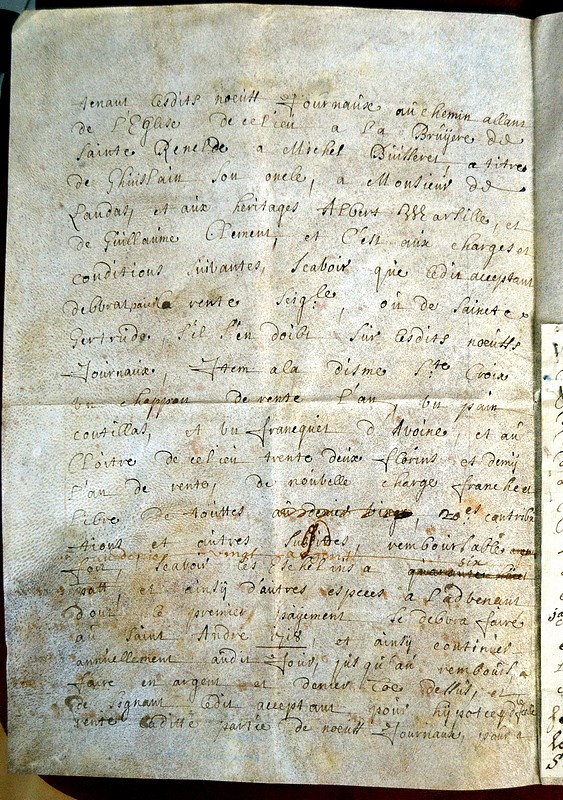 tenant lesdits noeuff Journaux au chemin allant
de l'Eglise de ce lieu a la Bruÿere de
Sainte Renelde a Michel Buisseret, a titre
de Ghuislain son oncle, a Monsieur de
Landas, et aux heritages Albert Marsille, et
de Guillaume Clement, et C'est aux charges et
conditions suivantes, Scavoir que ledit acceptant
debvrat paier la rente Seig.le, où de Saincte
Gertrude, s'il s'en doibt sur lesdits noeuff
Journaux, Item a la disme S.te Croix
un chappon de rente l'an, un pain
coutillas, et un francquet d'Avoine, et au
Cloître de ce lieu trente deux florins et demÿ
l'an de rente, de nouvelle charge franche et
libre de touttes 20.es contribu
tions et autres subsides, remboursable
Scavoir les Eschelins a six
patt, et ainsÿ d'autres especes a l'advenant
dont le premier paÿement se debvra faire
au Saint André 1718, et ainsÿ continuer
annüellement audit Jour, jusqu'au rembours a
faire en argent et denier Coe dessus, et
de Seignant ledit acceptant pour hÿpotecq
rente laditte partie de noeuff Journaux, pour